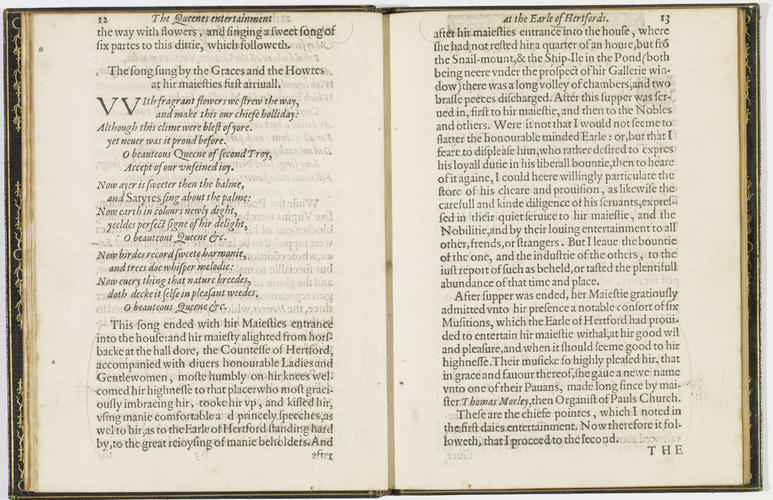 12 The Queenes entertainment
the way with flowers, and singing a sweet song of
six partes to this dittie, which followeth.
The song sung by the Graces and the Howres
at hir maiesties first arriuall.
VVIth fragrant flowers we strew the way,
and make this our chiefe holliday:
Although this clime were blest of yore.
yet neuer was it proud before.
O beauteous Queene of second Troy,
Accept of our vnfeined ioy.
Now ayer is sweeter then the balme,
and Satyres sing about the palme:
Now earth in colours newly dight,
yeeldes perfect signe of hir delight,
O beauteous Queene &c.
Now birdes record sweete harmonie,
and trees doe whisper melodie:
Now euery thing that nature breedes,
doth decke it selfe in pleasant weedes.
O beauteous Queene &c.
This song ended with hir Maiesties entrance
into the house: and hir maiesty alighted from hors-
backe at the hall dore, the Countesse of Hertford,
accompanied with diuers honourable Ladies and
Gentlewomen, moste humbly on hir knees wel-
comed hir highnesse to that place: who most graci-
ously imbracing hir, tooke hir vp, and kissed hir,
vsing manie comfortable a d princely speeches, as
wel to hir, as to the Earle of Hertford standing hard
by, to the great reioysing of manie beholders. And
after
at the Earle of Hertfords. 13
after hir maiesties entrance into the house, where
she had not rested hir a quarter of an houre, but frō
the Snail-mount, & the Ship-Ile in the Pond (both
being neere vnder the prospect of hir Gallerie win-
dow) there was a long volley of chambers, and two
brasse peeces discharged. After this supper was ser-
ued in, first to hir maiestie, and then to the Nobles
and others. Were it not that I would not seeme to
flatter the honourable minded Earle: or, but that I
feare to displease him, who rather desired to expres
his loyall dutie in his liberall bountie, then to heare
of it againe, I could heere willingly particulate the
store of his cheare and prouision, as likewise the
carefull and kinde diligence of his seruants, expres-
sed in their quiet seruice to hir maiestie, and the
Nobilitie, and by their louing entertainment to all
other, frends, or strangers. But I leaue the bountie
of the one, and the industrie of the others, to the
iust report of such as beheld, or tasted the plentifull
abundance of that time and place.
After supper was ended, her Maiestie gratiously
admitted vnto hir presence a notable consort of six
Musitions, which the Earle of Hertford had proui-
ded to entertain hir maiestie withal, at hir good wil
and pleasure, and when it should seeme good to hir
highnesse. Their musicke so highly pleased hir, that
in grace and fauour thereof, she gaue a newe name
vnto one of their Pauans, made long since by mai-
ster Thomas Morley, then Organist of Pauls Church.
These are the chiefe pointes, which I noted in
the first daies entertainment. Now therefore it fol-
loweth, that I proceed to the second.
THE